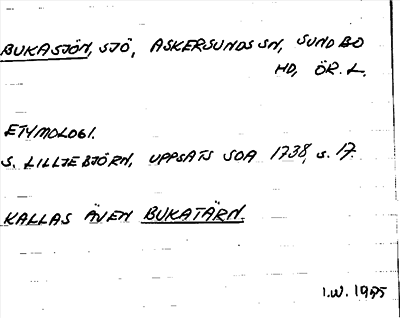 BUKASJÖN, SJÖ, ASKERSUNDS SN, SUNDBO
HD, ÖR. L.
ETYMOLOGI.
S. LILLJEBJÖRN, UPPSATS SOA 1738, s. 17.
KALLAS ÄVEN BUKATÄRN.
I.W. 1975